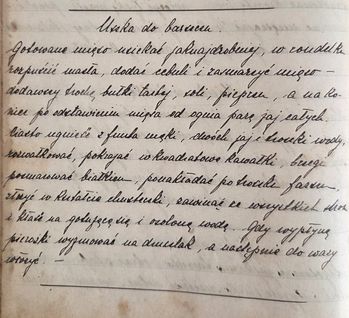 Uszka do barszczu.
Gotowane mięso usiekać jaknajdrobniej, w rondelku
rozpuścić masła, dodać cebuli i zasmarzyć mięso –
dodawszy trochę bułki tartej, soli, pieprzu, a na ko-
niec po odstawieniu mięsa od ognia parę jaj całych.
Ciasto zagnieść z funta mąki, dwóch jaj i troszki wody,
rozwałkować, pokrajać w kwadratowe kawałki, brzegi
posmarować białkiem, ponakładać po troszki farszu,
złożyć w kształcie chusteczki, zawinąć ze wszystkich stron
i kłaść na gotującą się i osoloną wodę. Gdy wypłyną
pierożki wyjmować na durszlak, a następnie do wazy
włożyć. –